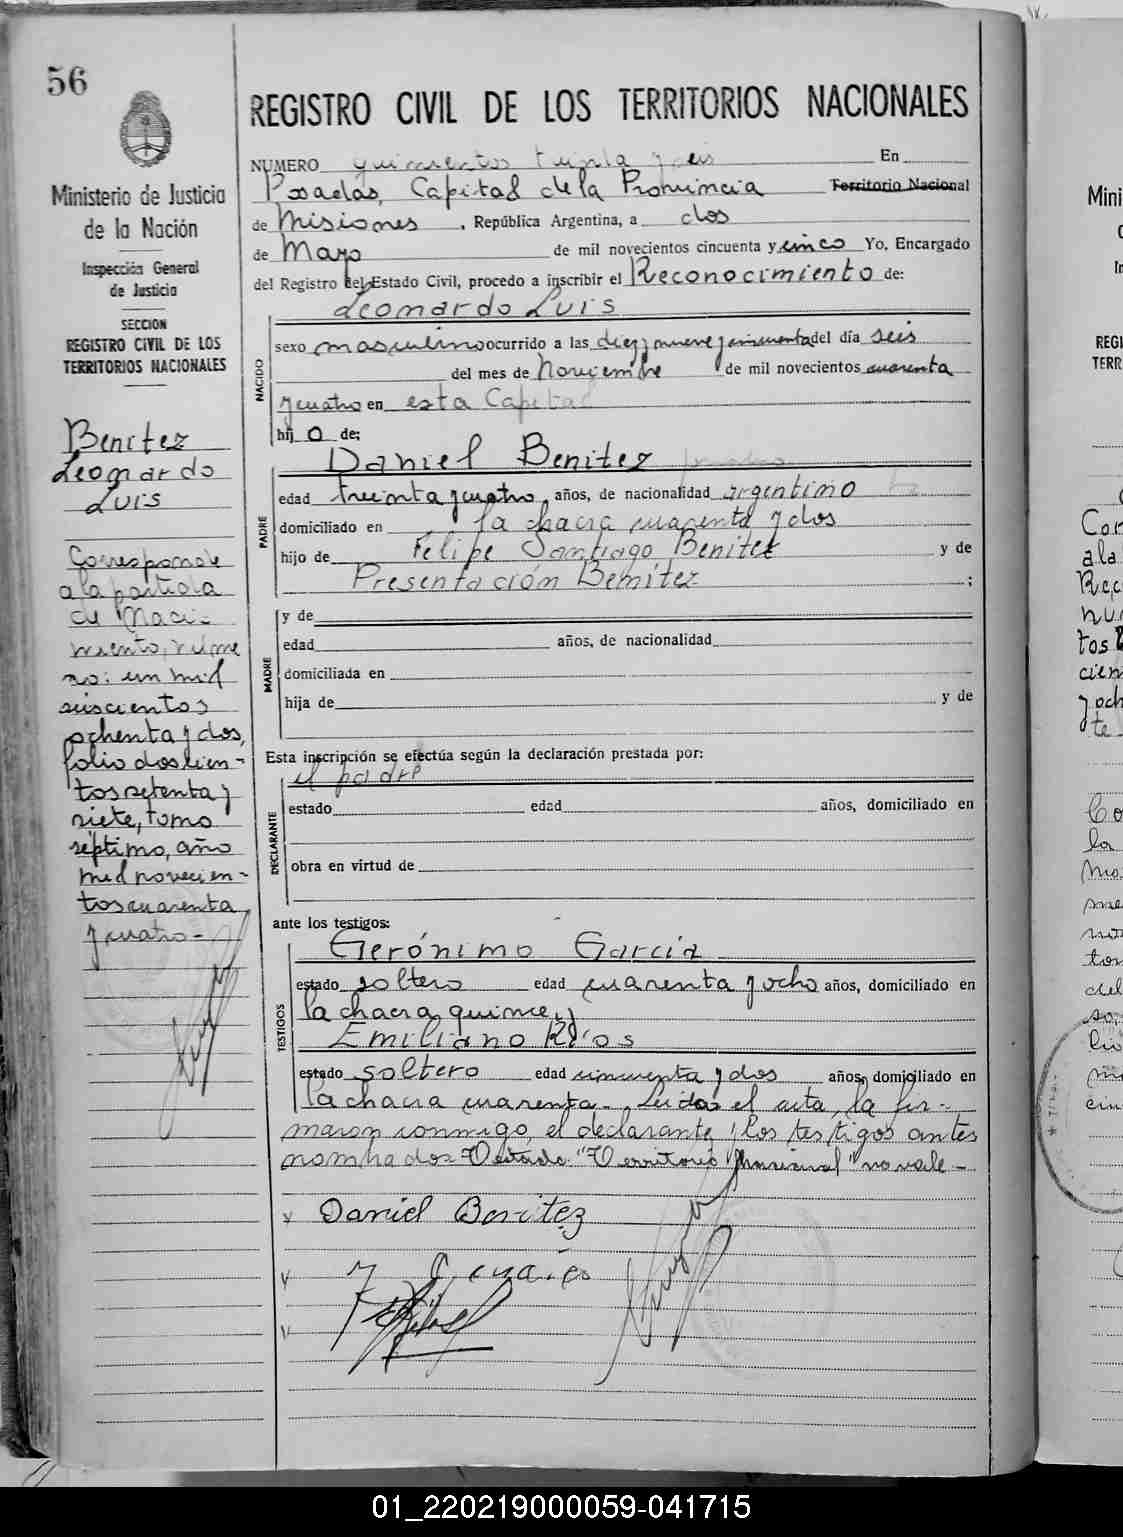 56
Ministerio de Justicia
de la Nación
Inspección General
de Justicia
SECCION
REGISTRO CIVIL DE LOS
TERRITORIOS NACIONALES
Benitez
Leonardo
Luis
Corresponde
a la partida
de Naci-
miento, núme
ro: un mil
seiscientos
ochenta y dos,
folio doscien-
tos setenta y
siete, tomo
séptimo, año
mil novecien-
tos cuarenta
y cuatro-
REGISTRO CIVIL DE LOS TERRITORIOS NACIONALES
NUMERO quinientos treinta y seis En
Posadas, Capital de la Provincia Territorio Nacional
de Misiones, República Argentina, a dos
de Mayo de mil novecientos cincuenta y cinco Yo, Encargado
del Registro del Estado Civil, procedo a inscribir el Reconocimiento de:
Leonardo Luis
NACIDO
sexo masculino ocurrido a las diez y nueve y cincuenta del día seis
del mes de Noviembre de mil novecientos cuarenta
y cuatro en esta Capital
hijo de;
PADRE
Daniel Benitez
edad treinta y cuatro, años, de nacionalidad argentino
domiciliado en la chacra cuarenta y dos
hijo de Felipe Santiago Benitez y de
Presentación Benítez ;
MADRE
y de
edad años, de nacionalidad
domiciliada en
hija de y de
Esta inscripción se efectúa según la declaración prestada por:
el padre
DECLARANTE
estado edad años, domiciliado en
obra en virtud de
ante los testigos:
TESTIGOS
Gerónimo García
estado soltero edad cuarenta y ocho años, domiciliado en
la chacra quince, y
Emiliano Ríos
estado soltero edad cincuenta y dos años, domiciliado en
la chacra cuarenta- Leida el acta, la fir-
maron conmigo, el declarante y los testigos antes
nombrados- Testado: "Territorio Nacional" no vale-
Daniel Benitez
01_220219000059-041715